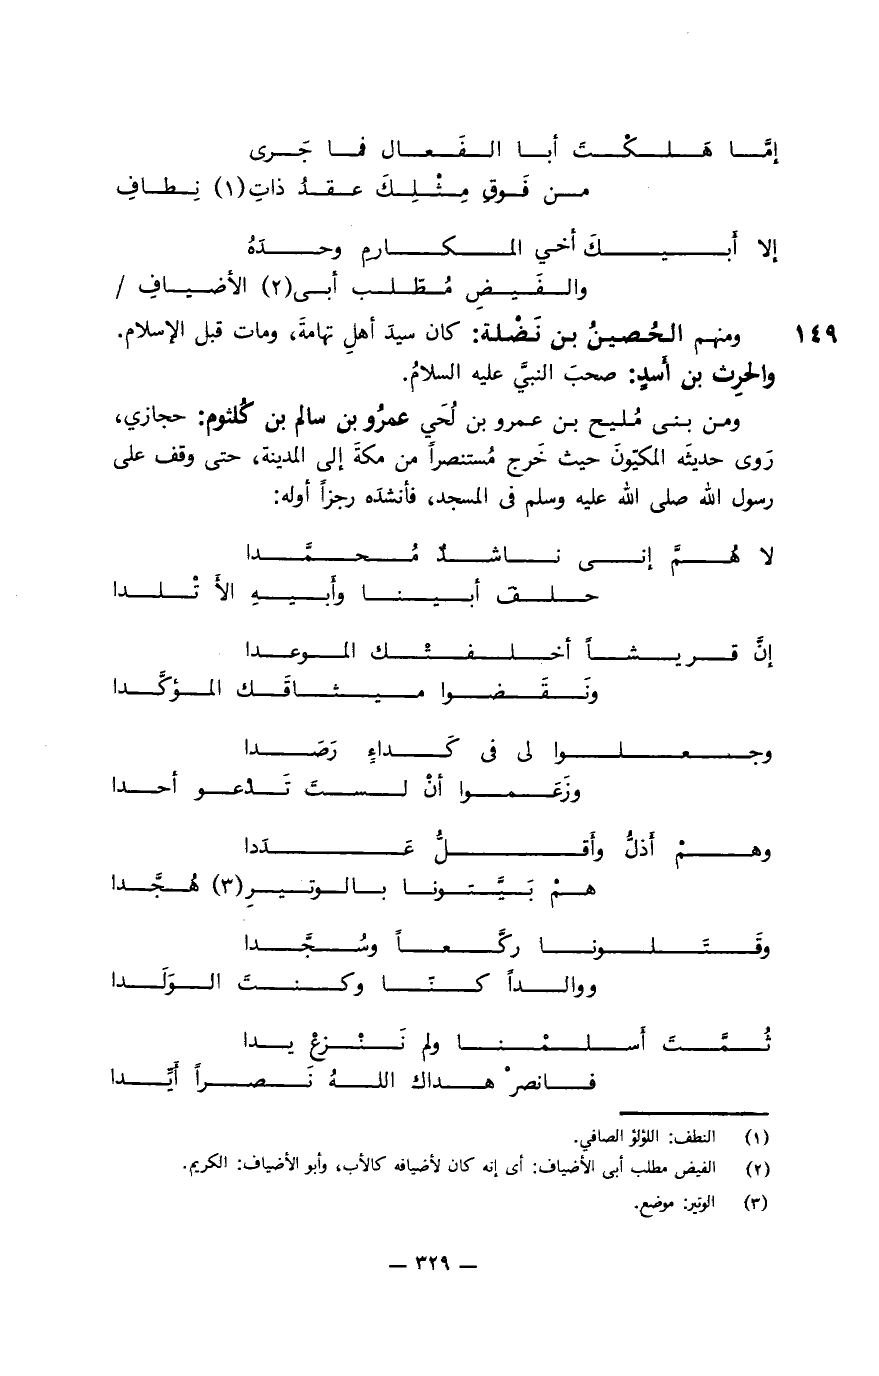 إمَّا هَلكْتَ أبا الفَعال فما جَرى
من فَوقِ مِثْلِكَ عقدُ ذاتِ(١) نِطافِ
إلا أَبيكَ أخي المكارمِ وحدَهُ
والفَيضِ مُطّلب أبى(٢) الأضيافِ /
١٤٩ ومنهم الحُصينُ بن نَضْلة: كان سيدَ أهلِ تهامةَ، ومات قبل الإسلام.
والحرِث بن أسدٍ: صحبَ النبيَّ عليه السلامُ.
ومن بنى مُليح بن عمرو بن لُحَي عمرُو بن سالم بن كُلثوم: حجازي،
رَوى حديثَه المكيّونَ حيث خَرج مُستنصراً من مكةَ إلى المدينة، حتى وقف على
رسول الله صلى الله عليه وسلم فى المسجد، فأنشدَه رجزاً أوله:
لا هُمَّ إنى ناشدٌ مُحمَّدا
حلفَ أبينا وأَبيهِ الأَتْلدا
إنَّ قريشاً أخلفتْك الموعدا
ونَقَضوا ميثاقَك المؤكَّدا
وجعلوا لى فى كَداءٍ رَصَدا
وزَعَموا أنْ لستَ تَدعو أحدا
وهمْ أَذلُّ وأَقلُّ عَدَدا
همْ بَيَّتونا بالوتيرِ(٣) هُجَّدا
وقَتَلونا ركَّعاً وسُجَّدا
ووالداً كنّا وكنتَ الوَلَدا
ثُمَّتَ أَسلمْنا ولم نَنْزعْ يدا
فانصرْ هداك اللهُ نَصراً أَيِّدا
(١) النطف: اللؤلؤ الصافي.
(٢) الفيض مطلب أبى الأضياف: أى إنه كان لأضيافه كالأب، وأبو الأضياف: الكريم.
(٣) الوتير: موضع.
— ٣٢٩ —